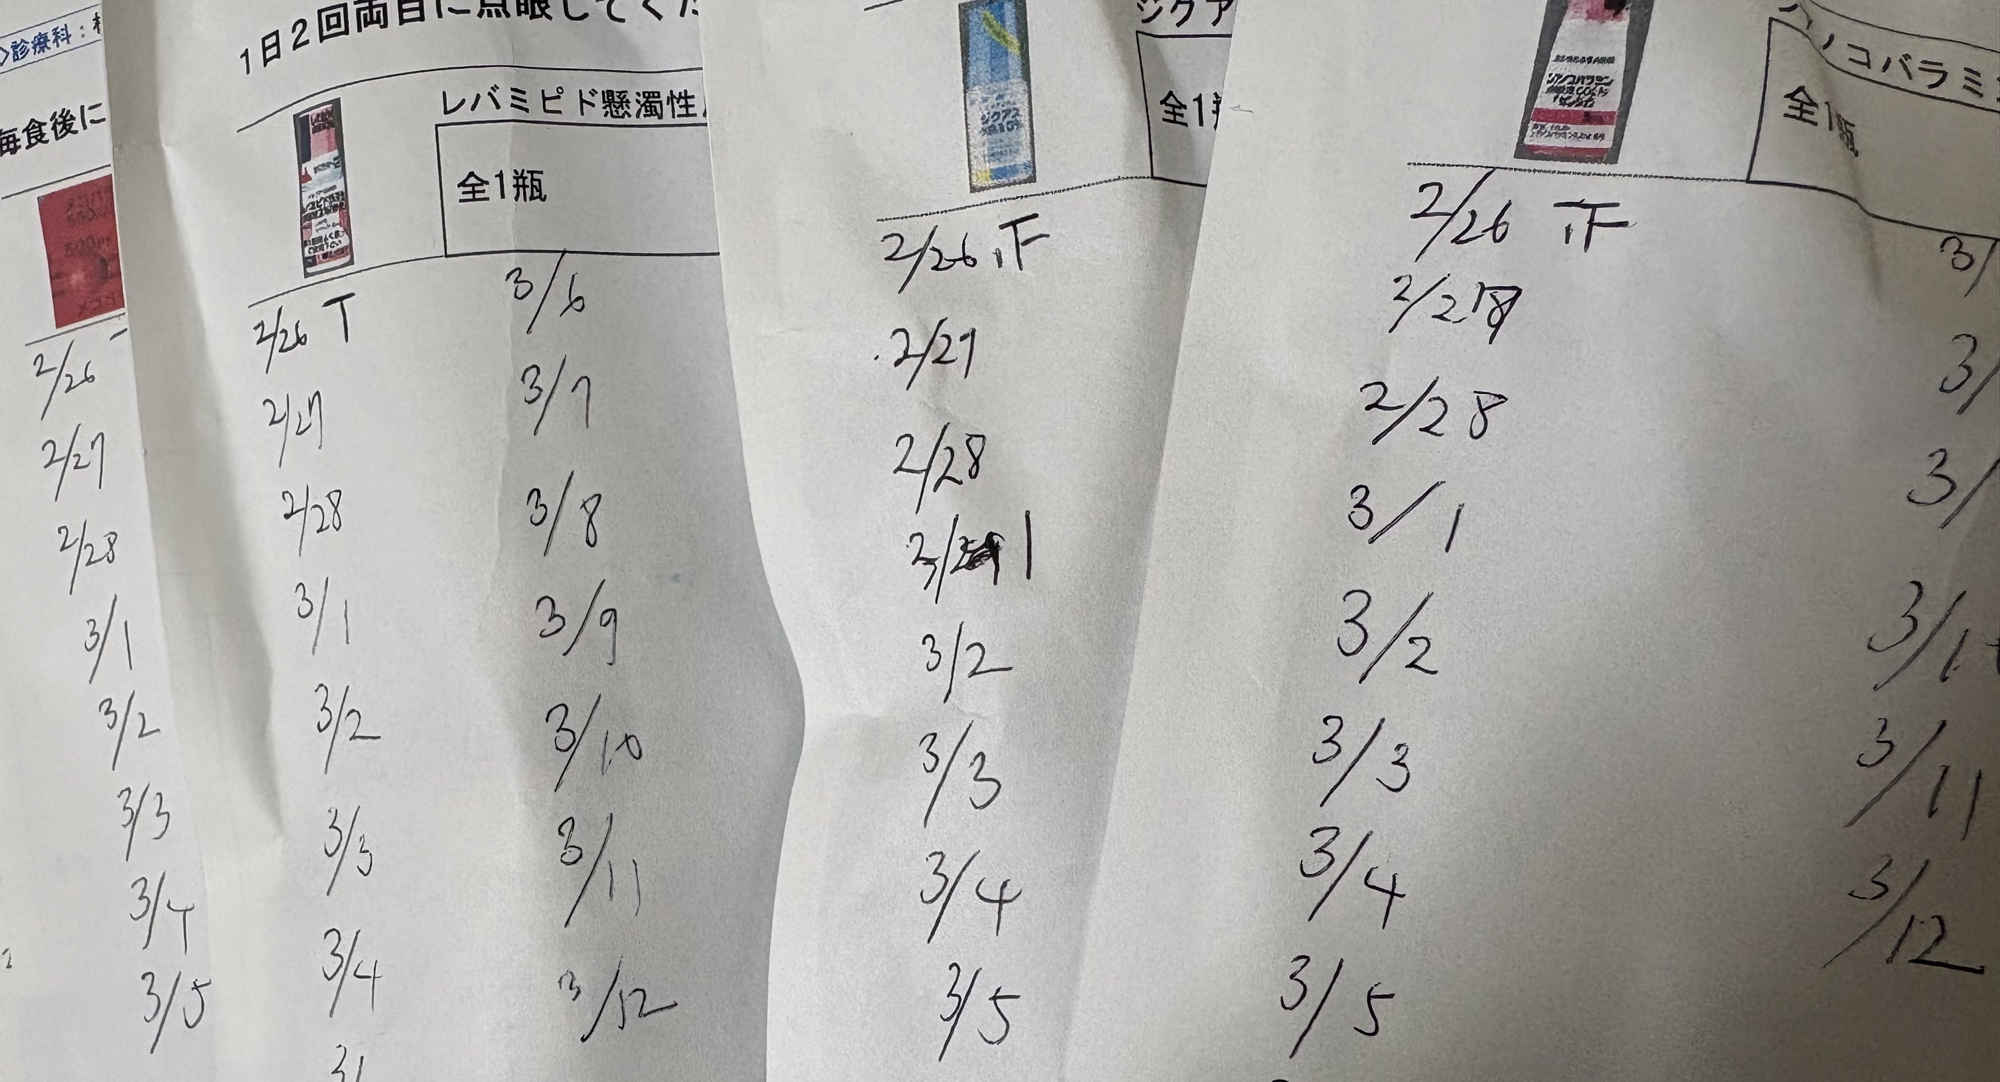 診療科：
毎食後に
2/26
2/27
2/28
3/1
3/2
3/3
3/4
3/5
1日2回両目に点眼してくだ
レバミピド懸濁性
全1瓶
2/26 T
2/27
2/28
3/1
3/2
3/3
3/4
3/
3/6
3/7
3/8
3/9
3/10
3/11
3/12
ジクア
ジクアス
全1瓶
2/26 正
2/27
2/28
3/1
3/2
3/3
3/4
3/5
ノコバラミ
シアノコバラミン
全1瓶
2/26 正
2/27
2/28
3/1
3/2
3/3
3/4
3/5
3/
3/
3/
3/10
3/11
3/12